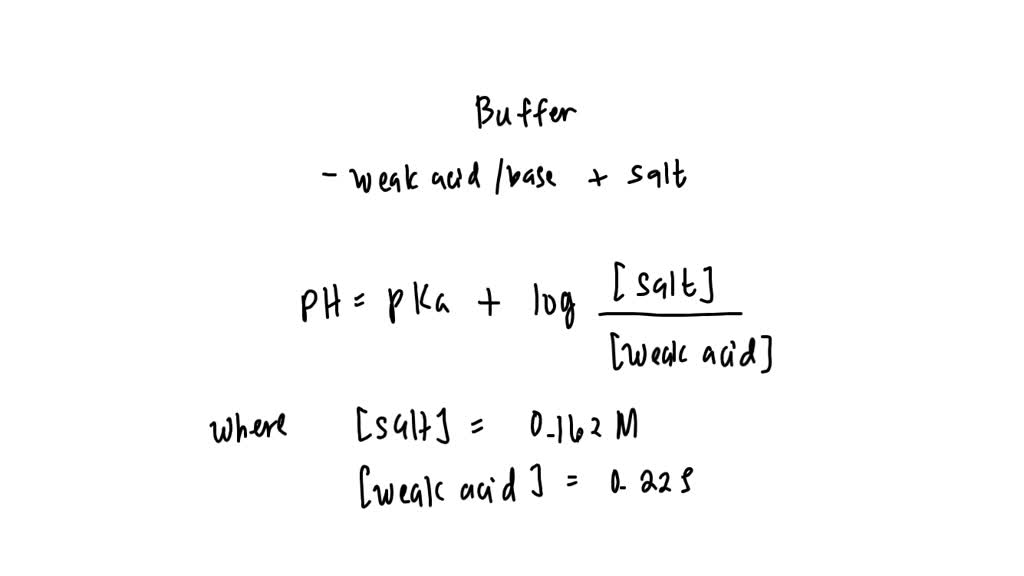 Buffer
- weak acid / base + salt
pH = pKa + log [salt] / [weak acid]
where [salt] = 0.162 M
[weak acid] = 0.225